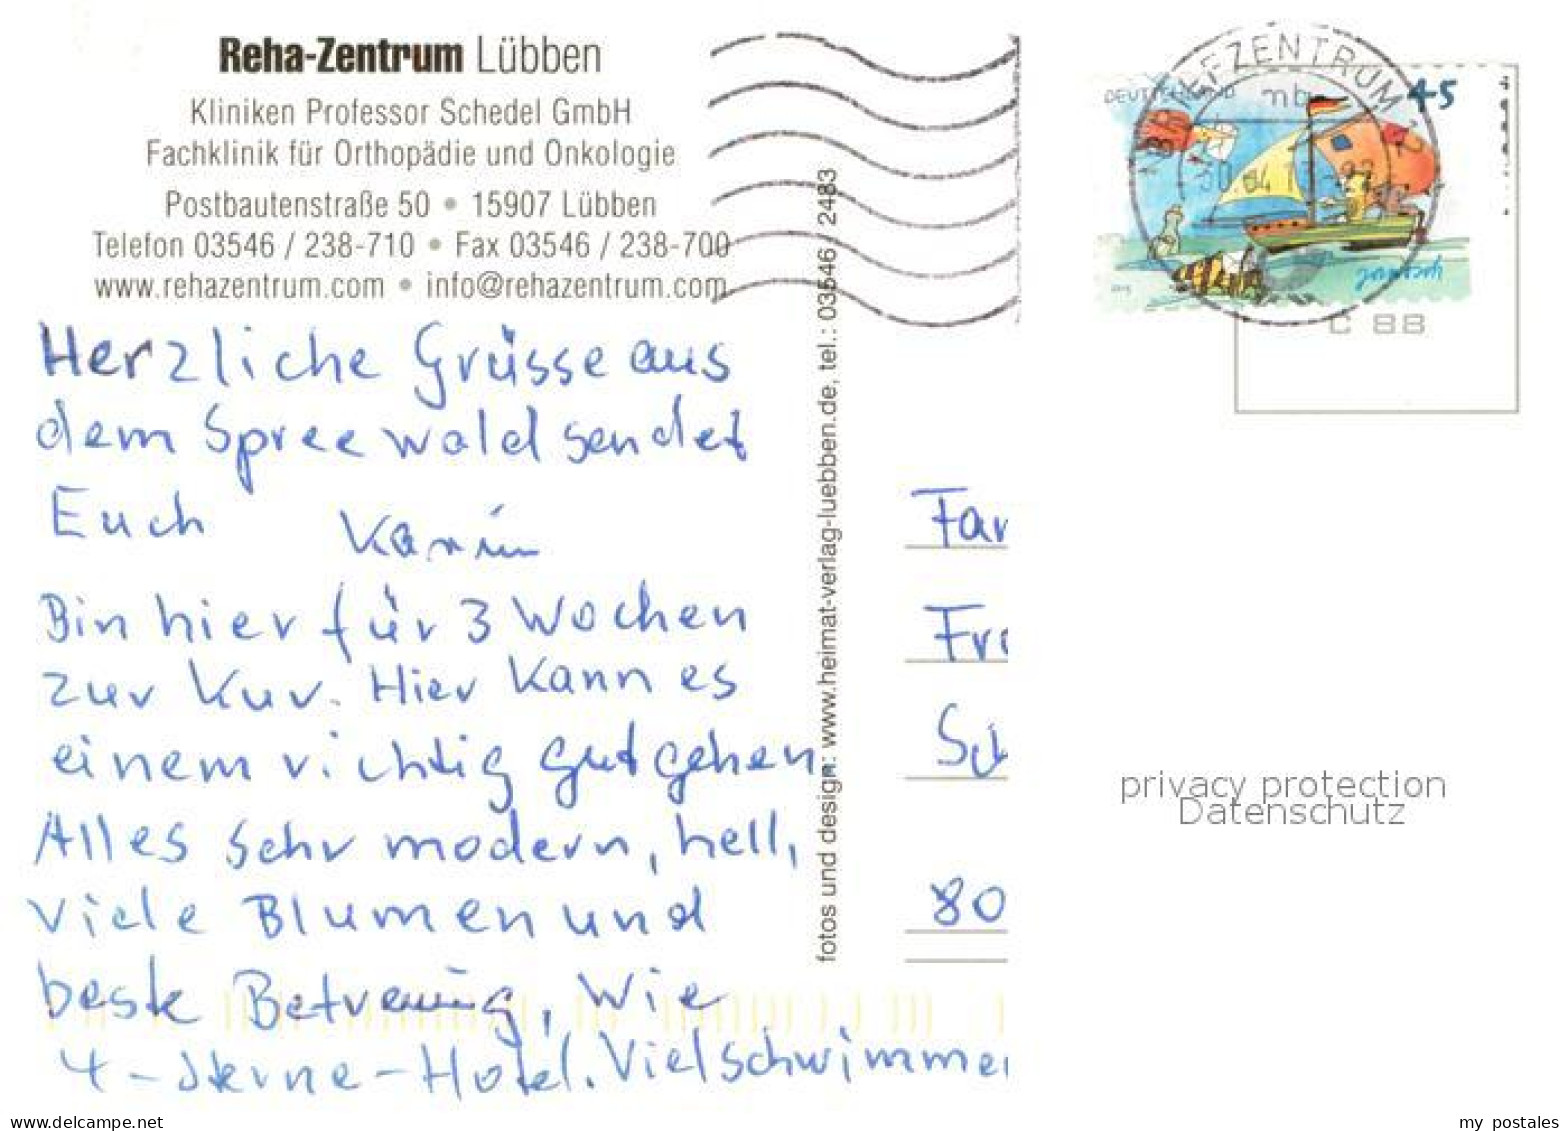 Reha-Zentrum Lübben
Kliniken Professor Schedel GmbH
Fachklinik für Orthopädie und Onkologie
Postbautenstraße 50 • 15907 Lübben
Telefon 03546 / 238-710 • Fax 03546 / 238-700
www.rehazentrum.com • info@rehazentrum.com
Herzliche Grüsse aus
dem Spreewald sendet
Euch Karin
Bin hier für 3 Wochen
zur Kur. Hier kann es
einem richtig gut gehen.
Alles sehr modern, hell,
viele Blumen und
beste Betreuung, wie
4-Sterne-Hotel. Viel schwimme
fotos und design: www.heimat-verlag-luebben.de, tel.: 03546 / 2483
BRIEFZENTRUM 12
mb
DEUTSCHLAND
45
Janosch
C 88
Fam
Fra
80
privacy protection
Datenschutz
www.delcampe.net
my_postales